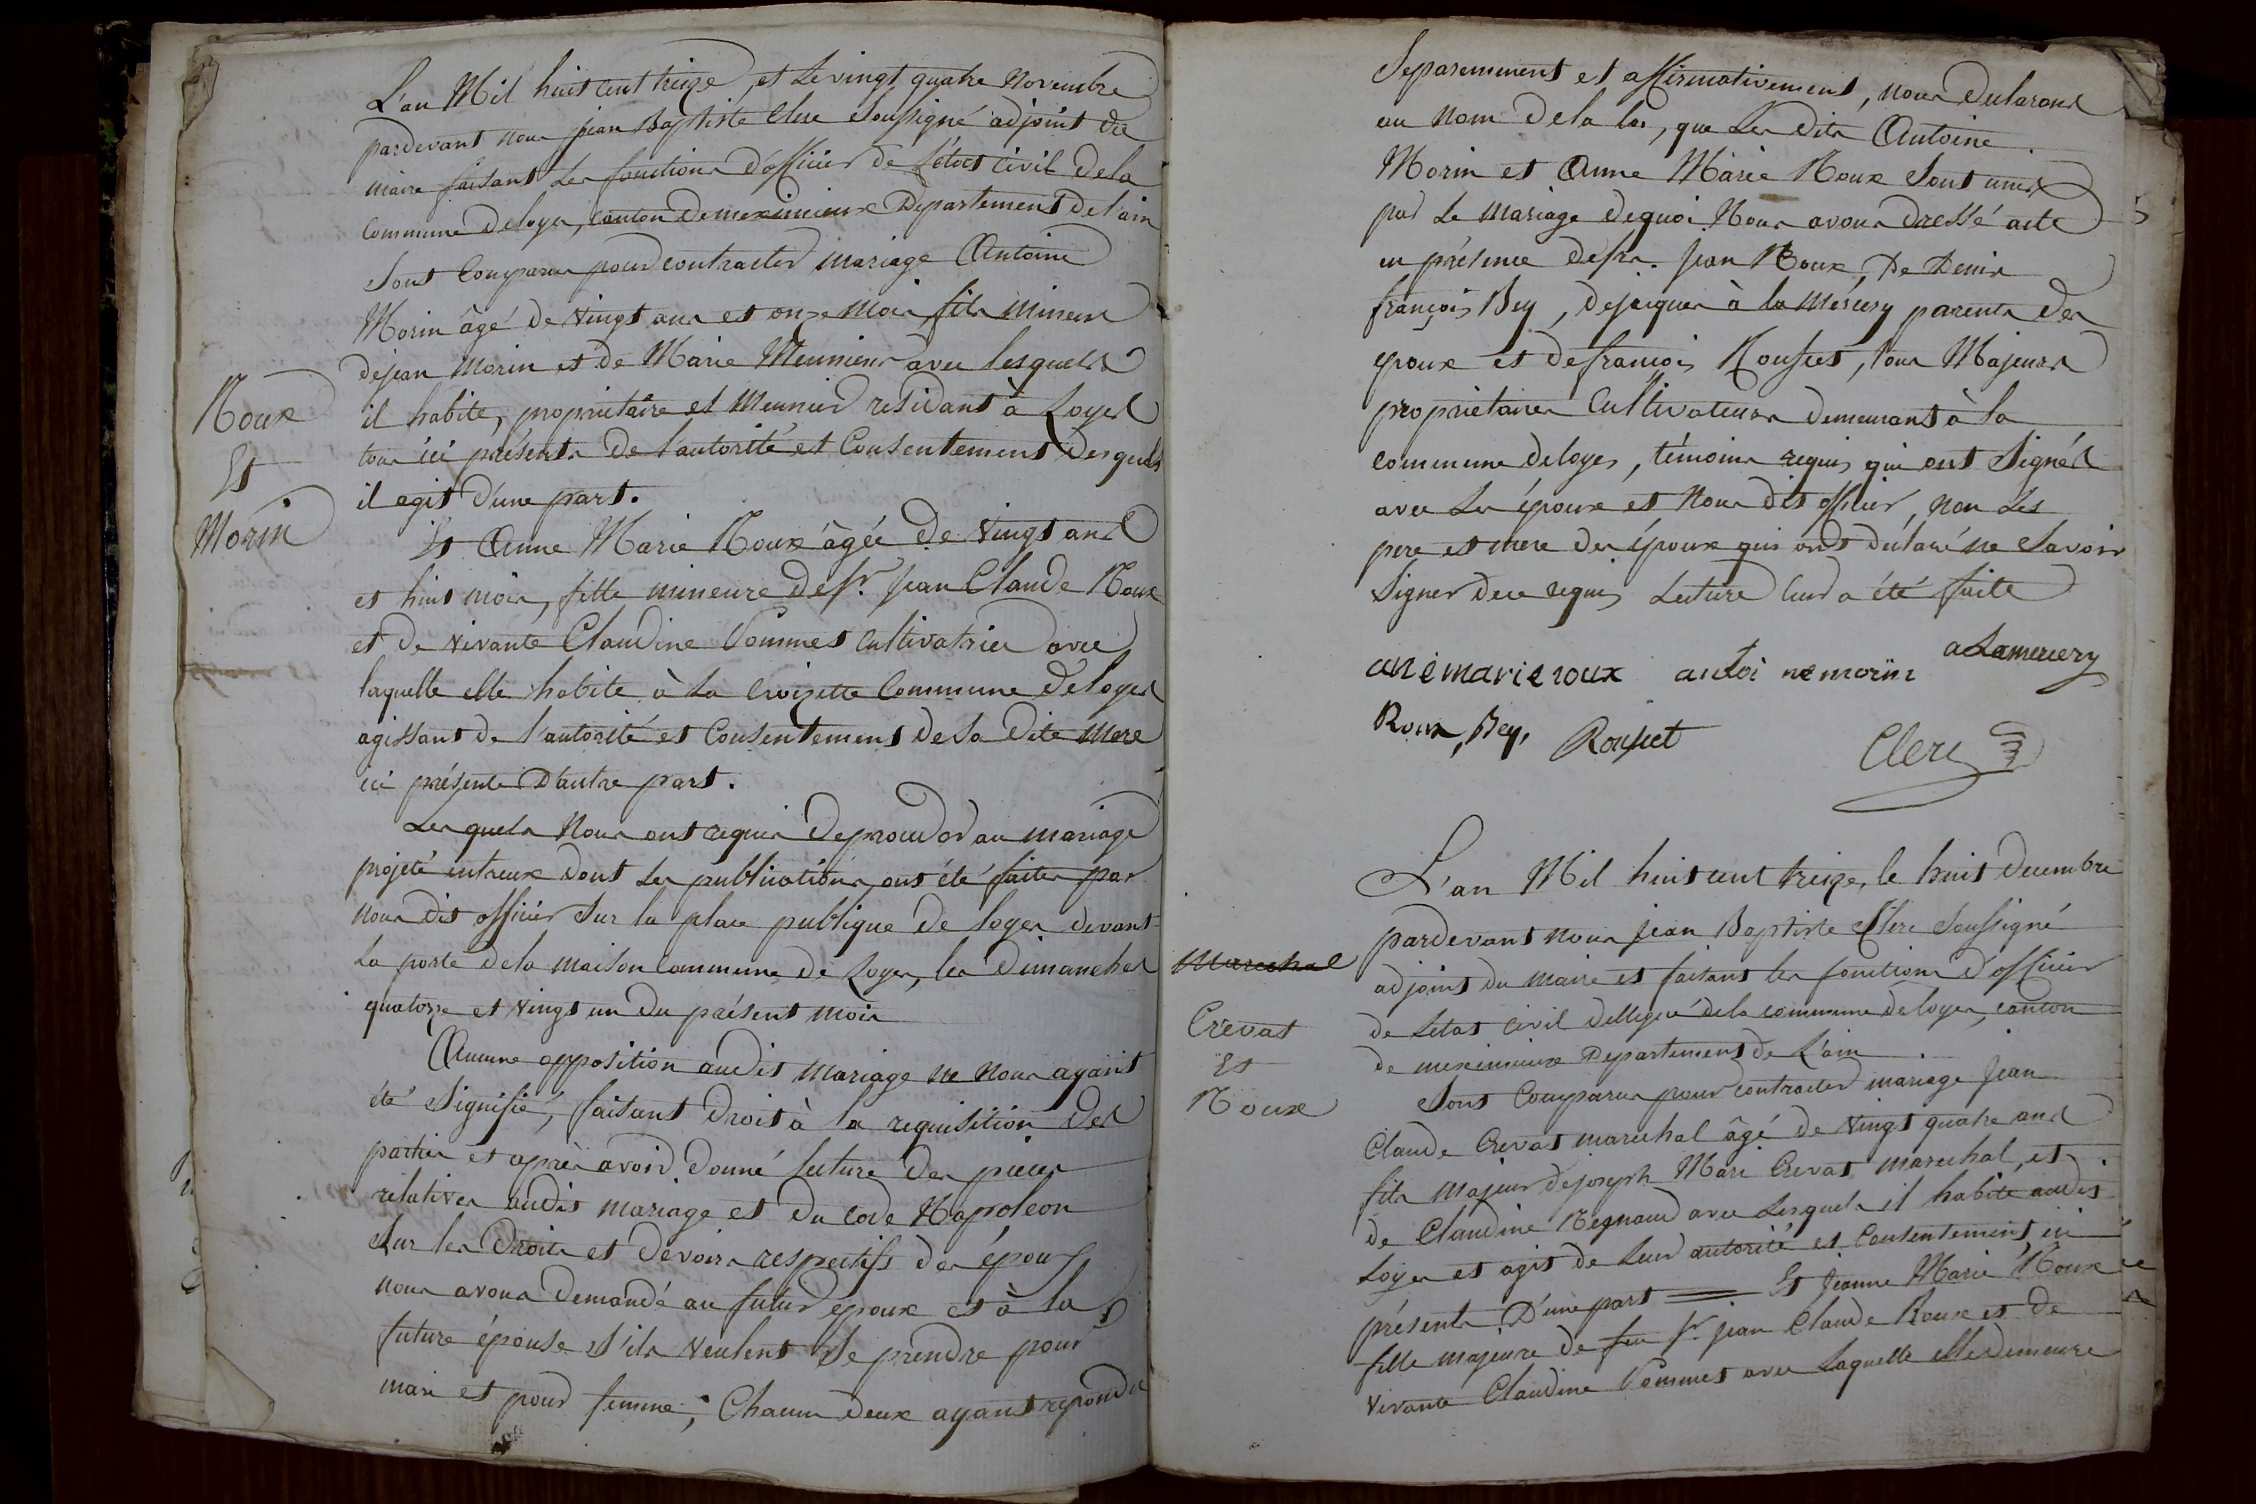 L'an Mil huit cent treize, et Le vingt quatre Novembre
pardevant nous jean Baptiste Clerc Soussigné adjoint du
maire faisant Les fonctions d'officier de L'état Civil dela
Commune deloyes, canton demeximieux Département del'ain
Sont Comparus pour contracter mariage Antoine
Morin âgé de vingt ans et onze mois, fils mineur
dejean Morin et de Marie Meunieur avec lesquels
il habite, propriétaire et Meunier residant à Loyes
tous ici présents De l'autorité et Consentement desquels
il agit D'une part.
Roux
Et
Morin
Et Anne Marie Roux âgée de vingt ans
et huit mois, fille mineure de fr. Jean Claude Roux
et de vivante Claudine Pommet Cultivatrice avec
laquelle elle habite à La Croizette Commune de loyes
agissant de l'autorité et Consentement de Sa dite Mere
ici présente D'autre part.
Lesquels Nous ont requis De proceder au mariage
projeté entreux dont Les publications ont été faites par
nous dit officier Sur la place publique de loyes devant
La porte dela maison Commune de Loyes, les dimanches
quatorze et vingt un du présent mois
Aucune opposition audit Mariage ne Nous ayant
été Signifié, faisant Droit à la requisition des
parties et après avoir donné lecture des pièces
relatives audit mariage et du Code Napoléon
Sur les Droits et devoirs respectifs des époux
nous avons demandé au futur époux et à la
future épouse S'ils veulent Se prendre pour
mari et pour femme; Chacun deux ayant repondu
Separemment et affirmativement, nous déclarons
au Nom dela loi, que Les dits Antoine
Morin et Anne Marie Roux Sont unis
par Le mariage dequoi Nous avons dressé acte
en présence de srs. Jean Roux, De Denis
françois Bey, dejacques à la Mercery parents des
epoux et defrancois Rousset, tous Majeurs
propriétaires Cultivateurs demeurant à la
commune deloyes, témoins requis qui ont Signés
avec Les époux et Nous dit officier, Non Les
pere et mere des époux qui ont déclaré ne Savoir
Signer de ce requis Lecture leur a été faite
anemarieroux antoi ne morin aLamercery
Roux, Bey, Rousset Clerc
L'an Mil huit cent treize, le huit Decembre
pardevant nous jean Baptiste Clerc Soussigné
adjoint du maire et faisant les fonctions d'officier
de Létat Civil dellegué dela commune de loyes, canton
de meximieux Departement de L'ain
Marechal
Crevat
Et
Roux
Sont Comparus pour contracter mariage Jean
Claude Crevat marechal âgé de vingt quatre ans
fils majeur dejoseph Mari Crevat marechal, et
de Claudine Regnaud avec Lesquels il habite audit
Loyes et agit de Leur autorité et Consentement, ici
présents D'une part Et Jeanne Marie Roux
fille majeure de feu sr. jean Claude Roux et de
vivante Claudine Pommet avec Laquelle elle demeure